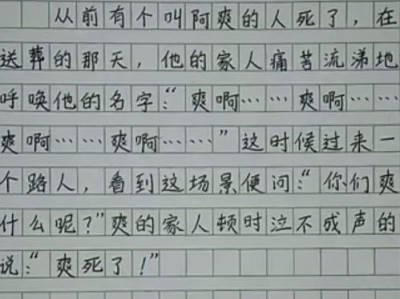 从前有个叫阿爽的人死了,在
送葬的那天,他的家人痛苦流涕地
呼唤他的名字:“爽啊……爽啊……
爽啊……爽啊……”这时候过来一
个路人,看到这场景便问:“你们爽
什么呢?”爽的家人顿时泣不成声的
说:“爽死了!”